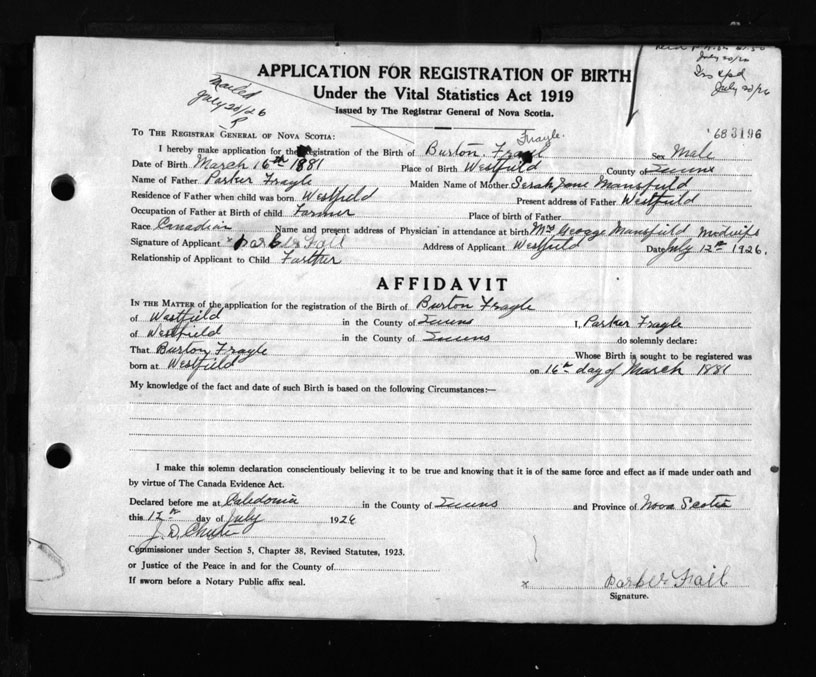 July 20/26
July 20/26
Mailed
July 20/26
APPLICATION FOR REGISTRATION OF BIRTH
Under the Vital Statistics Act 1919
Issued by The Registrar General of Nova Scotia.
683196
TO THE REGISTRAR GENERAL OF NOVA SCOTIA:
Frayle.
I hereby make application for the Registration of the Birth of Burton. Sex Male
Date of Birth March 16th 1881 Place of Birth Westfield County of
Name of Father Parker Frayle Maiden Name of Mother Serah Jane Mansfield
Residence of Father when child was born Westfield Present address of Father Westfield
Occupation of Father at Birth of child Farmer Place of birth of Father
Race Canadian Name and present address of Physician in attendance at birth Mrs George Mansfield midwife
Signature of Applicant x Parker Frail Address of Applicant Westfield Date July 12th 1926.
Relationship of Applicant to Child Farther
AFFIDAVIT
IN THE MATTER of the application for the registration of the Birth of Burton Frayle
of Westfield in the County of I, Parker Frayle
of Westfield in the County of do solemnly declare:
That Burton Frayle Whose Birth is sought to be registered was
born at Westfield on 16th day of March 1881
My knowledge of the fact and date of such Birth is based on the following Circumstances:—
I make this solemn declaration conscientiously believing it to be true and knowing that it is of the same force and effect as if made under oath and
by virtue of The Canada Evidence Act.
Declared before me at Caledonia in the County of and Province of Nova Scotia
this 12th day of July 1926
J. D. Chute
Commissioner under Section 5, Chapter 38, Revised Statutes, 1923.
or Justice of the Peace in and for the County of
If sworn before a Notary Public affix seal.
x Parker Frail
Signature.